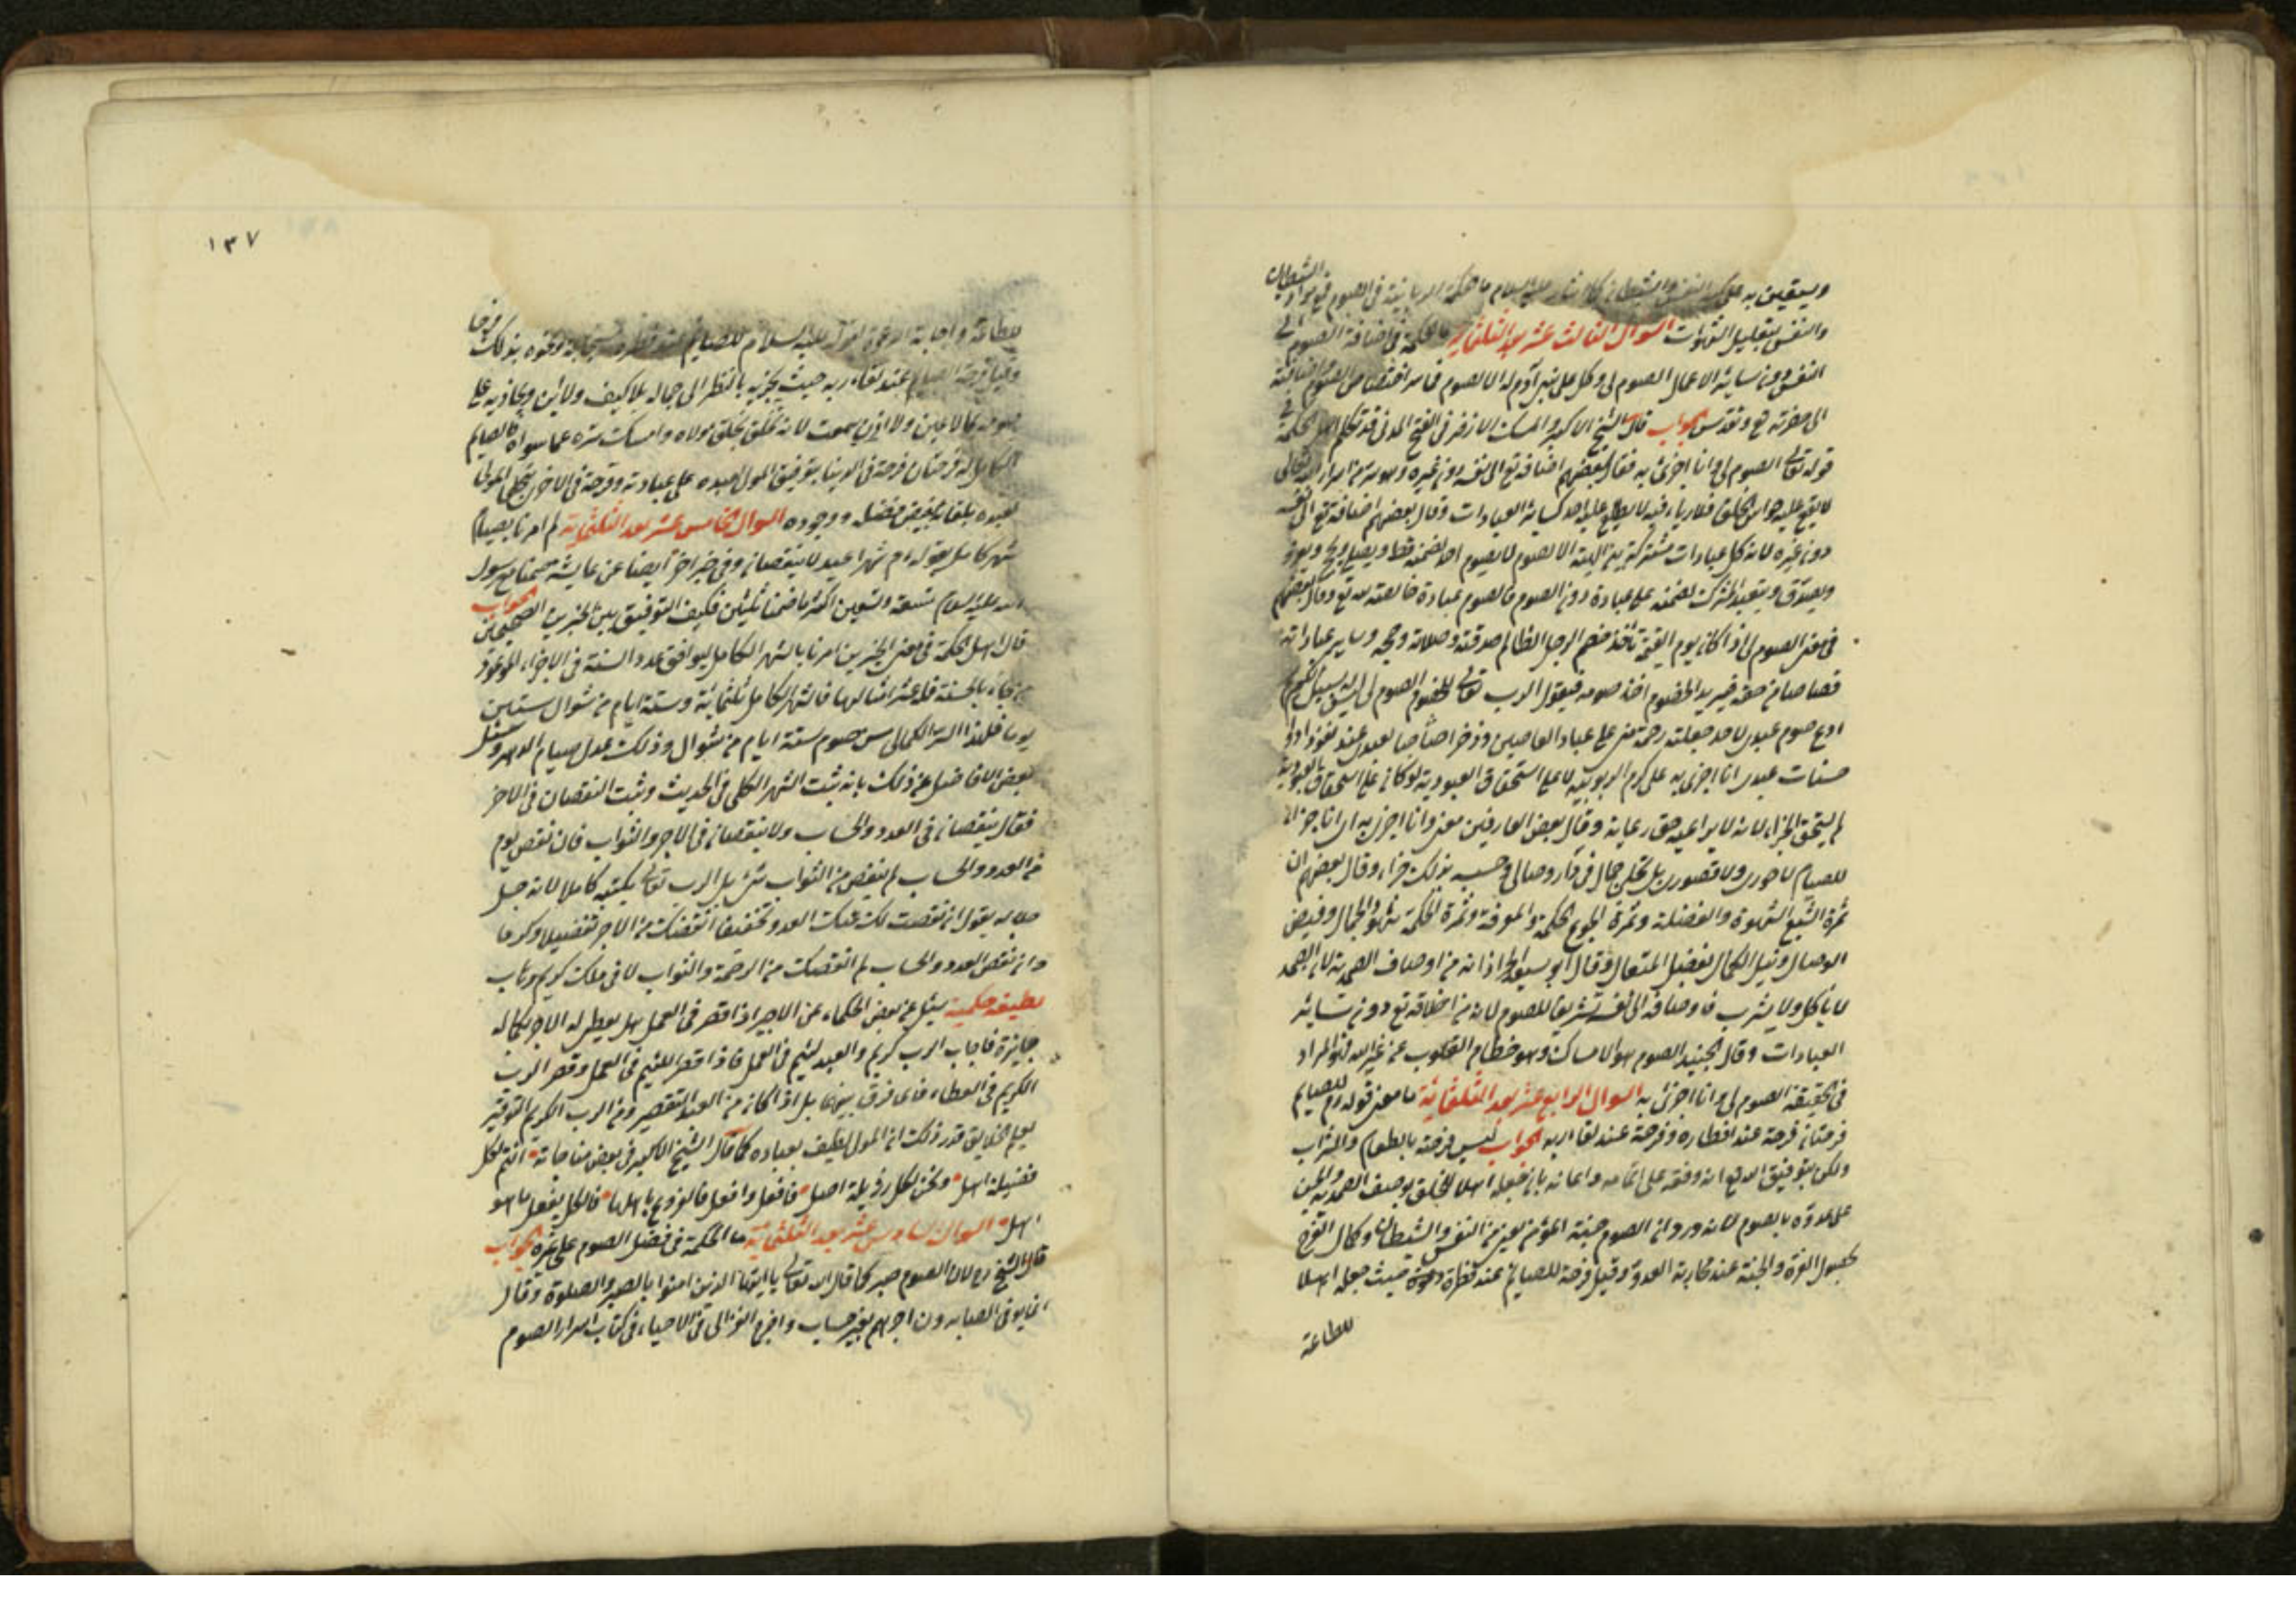 ويستعين به على النفس والشيطان كما اشار عليه السلام ما حكمة الربانية في الصوم قمع مراد الشيطان
والنفس بتقليل الشهوات السوال الثالث عشر بعد الثلثماية ما الحكمة في اضافة الصوم الى
النفس دون سائر الاعمال الصوم لي وكل عمل ابن آدم له الا الصوم فما سر اختصاص الصوم واضافته
الى حضرته الجواب قال الشيخ الاكبر والمسك الاذفر في الفتح المدني قد تكلم اهل الحكمة في
قوله تعالى الصوم لي وانا اجزئ به فقال بعضهم اضافه تع الى نفسه دون غيره وهو سر من اسرار الله تعالى
لا يقع عليه حواس الخلق فلا رياء فيه لا يطلع عليه احد كسائر العبادات وقال بعضهم اضافه تع الى نفسه
دون غيره لانه كل عبادات مشتركة الا الصوم لا يصوم احد لصنمه قط ويصلي ويحج
ويصدق ويتعبد المشرك لصنمه على عبادة دون الصوم فالصوم عبادة خالصة لله تع وقال بعضهم
في معنى الصوم لي اذا كان يوم القيمة تأخذ خصم الرجل الظالم صدقته وصلاته وحجه وساير عباداته
قصاصا من حقه فيريد الخصوم اخذ صومه فيقول الرب تعالى للخصوم الصوم لي ليس لكم سبيل اليه
ادع صوم عبدي لاحد جعلته رحمة مني على عباد العاصين وذخرا خاصا لعبدي عند نفوذ
حسنات عبدي انا اجزئ به على كرم الربوبية لا على استحقاق العبودية لو كان على استحقاق العبودية
لم يستحق الجزاء لانه لا يراعيه حق رعايته وقال بعض العارفين معنى وانا اجزئ به اي انا جزاؤ
للصيام لا حوري ولا قصوري بل تجلى جمالي في دار وصالي وحسبه بذلك جزاء وقال بعضهم ان
ثمرة الشبع الشهوة والفضلة وثمرة الجوع الحكمة والمعرفة وثمرة الحكمة شهود الجمال وفيض
الوصال ونيل الكمال بفضل المتعال وقال ابو سعيد الخراز انه من اوصاف الصمدية لان الصمد
لا يأكل ولا يشرب فاوصافه الى نفسه تشريفا للصوم لانه من اخلاقه تع دون سائر
العبادات وقال الجنيد الصوم هو الامساك وهو خطام القلوب عن غير الله فهو المراد
في الحقيقة الصوم لي وانا اجزئ به السوال الرابع عشر بعد الثلثمائة ما معنى قوله للصايم
فرحتان فرحة عند افطاره وفرحة عند لقاء ربه الجواب ليس فرحة بالطعام والشراب
ولكن بتوفيق الله تع انه وفقه على اتمامه واعانه بان جعله اهلا للخلق بوصف الصمدية
على عدوه بالصوم لانه ورد ان الصوم جنة المؤمن يعني من النفس والشيطان وكمال الفرح
بحصول العزة والجنة عند محاربة العدو وقيل فرحة للصايم عند فطره حيث جعله اهلا
للطاعة
١٣٧
للطاعة واجابة الدعوة لقوله عليه السلام للصايم عند فطره دعوة بذلك فرحا
واما فرحة الصايم عند لقاء ربه حيث يجزيه بالنظر الى جماله بلا كيف ولا اين ويجازيه على
صومه بما لا عين ولا اذن سمعت لانه تخلق بخلق مولاه وامسك سره عما سواه فالصايم
الكامل له فرحتان فرحة في الدنيا بتوفيق المولى عبده على عبادته وفرحة في الاخرة بتجلي المولى
لعبده بلقائه بفيض فضله ووجوده السوال الخامس عشر بعد الثلثماية لم امرنا بصيام
شهر كامل بقوله م شهرا عيد لا ينقصان وفي خبر اخر ايضا عن عايشة صمنا مع رسول
الله عليه السلام تسعة وتسعين اكثر ما صمنا ثلثين فكيف التوفيق بين الخبرين الصحيحين الجواب
قال اهل الحكمة في معنى الخبرين امرنا بالشهر الكامل ليوافق عدد السنة في الاجزاء الموعود
من جاء بالحسنة فله عشر امثالها فالشهر الكامل ثلثمائة وستة ايام من شوال ستين
يوما فلهذا السر الكمالي سن صوم ستة ايام من شوال وذلك عدل صيام الدهر وسئل
بعض الافاضل عن ذلك بانه ثبت الشهر الكلي في الحديث وثبت النقصان في الاخر
فقال ينقصان في العدد والحساب ولا ينقصان في الاجر والثواب فان نقص يوم
من العدد والحساب لم ينقص من الثواب شئ بل الرب تعالى يكتبه كاملا لانه جل
جلاله يقول ان نقصت لك عنك العدد تخفيفا انقصتك من الاجر تفضيلا وكرما
وان نقص العدد والحساب لم انقصك من الرحمة والثواب لا في ملك كريم وتاب
لطيفة حكمية سئل عن بعض الحكماء عن الاجير اذا قصر في العمل هل يعطى له الاجر بكماله
جائزة فاجاب الرب كريم والعبد لئيم في العمل فاذا قصر اللئيم في العمل وقصر الرب
الكريم في العطاء فاي فرق بينهما بل اذا كان من العبد التقصير ومن الرب الكريم التوفير
يعلم الخلايق قدر ذلك ان المولى لطيف بعباده كما قال الشيخ الاكبر في بعض مناجاته انتم لكل
فضيلة اهل ونحن لكل رذيلة اصل فافعل وافعل فالفروع باهلها فالكل يفعل ما هو
اهل السوال السادس عشر بعد الثلثمائة ما الحكمة في فضل الصوم على غيره الجواب
قال الشيخ رح لان الصوم صبر كما قال الله تعالى يا ايها الذين امنوا بالصبر والصلوة وقال
انما يوفى الصابرون اجرهم بغير حساب واخرج الغزالي في الاحياء في كتاب اسرار الصوم